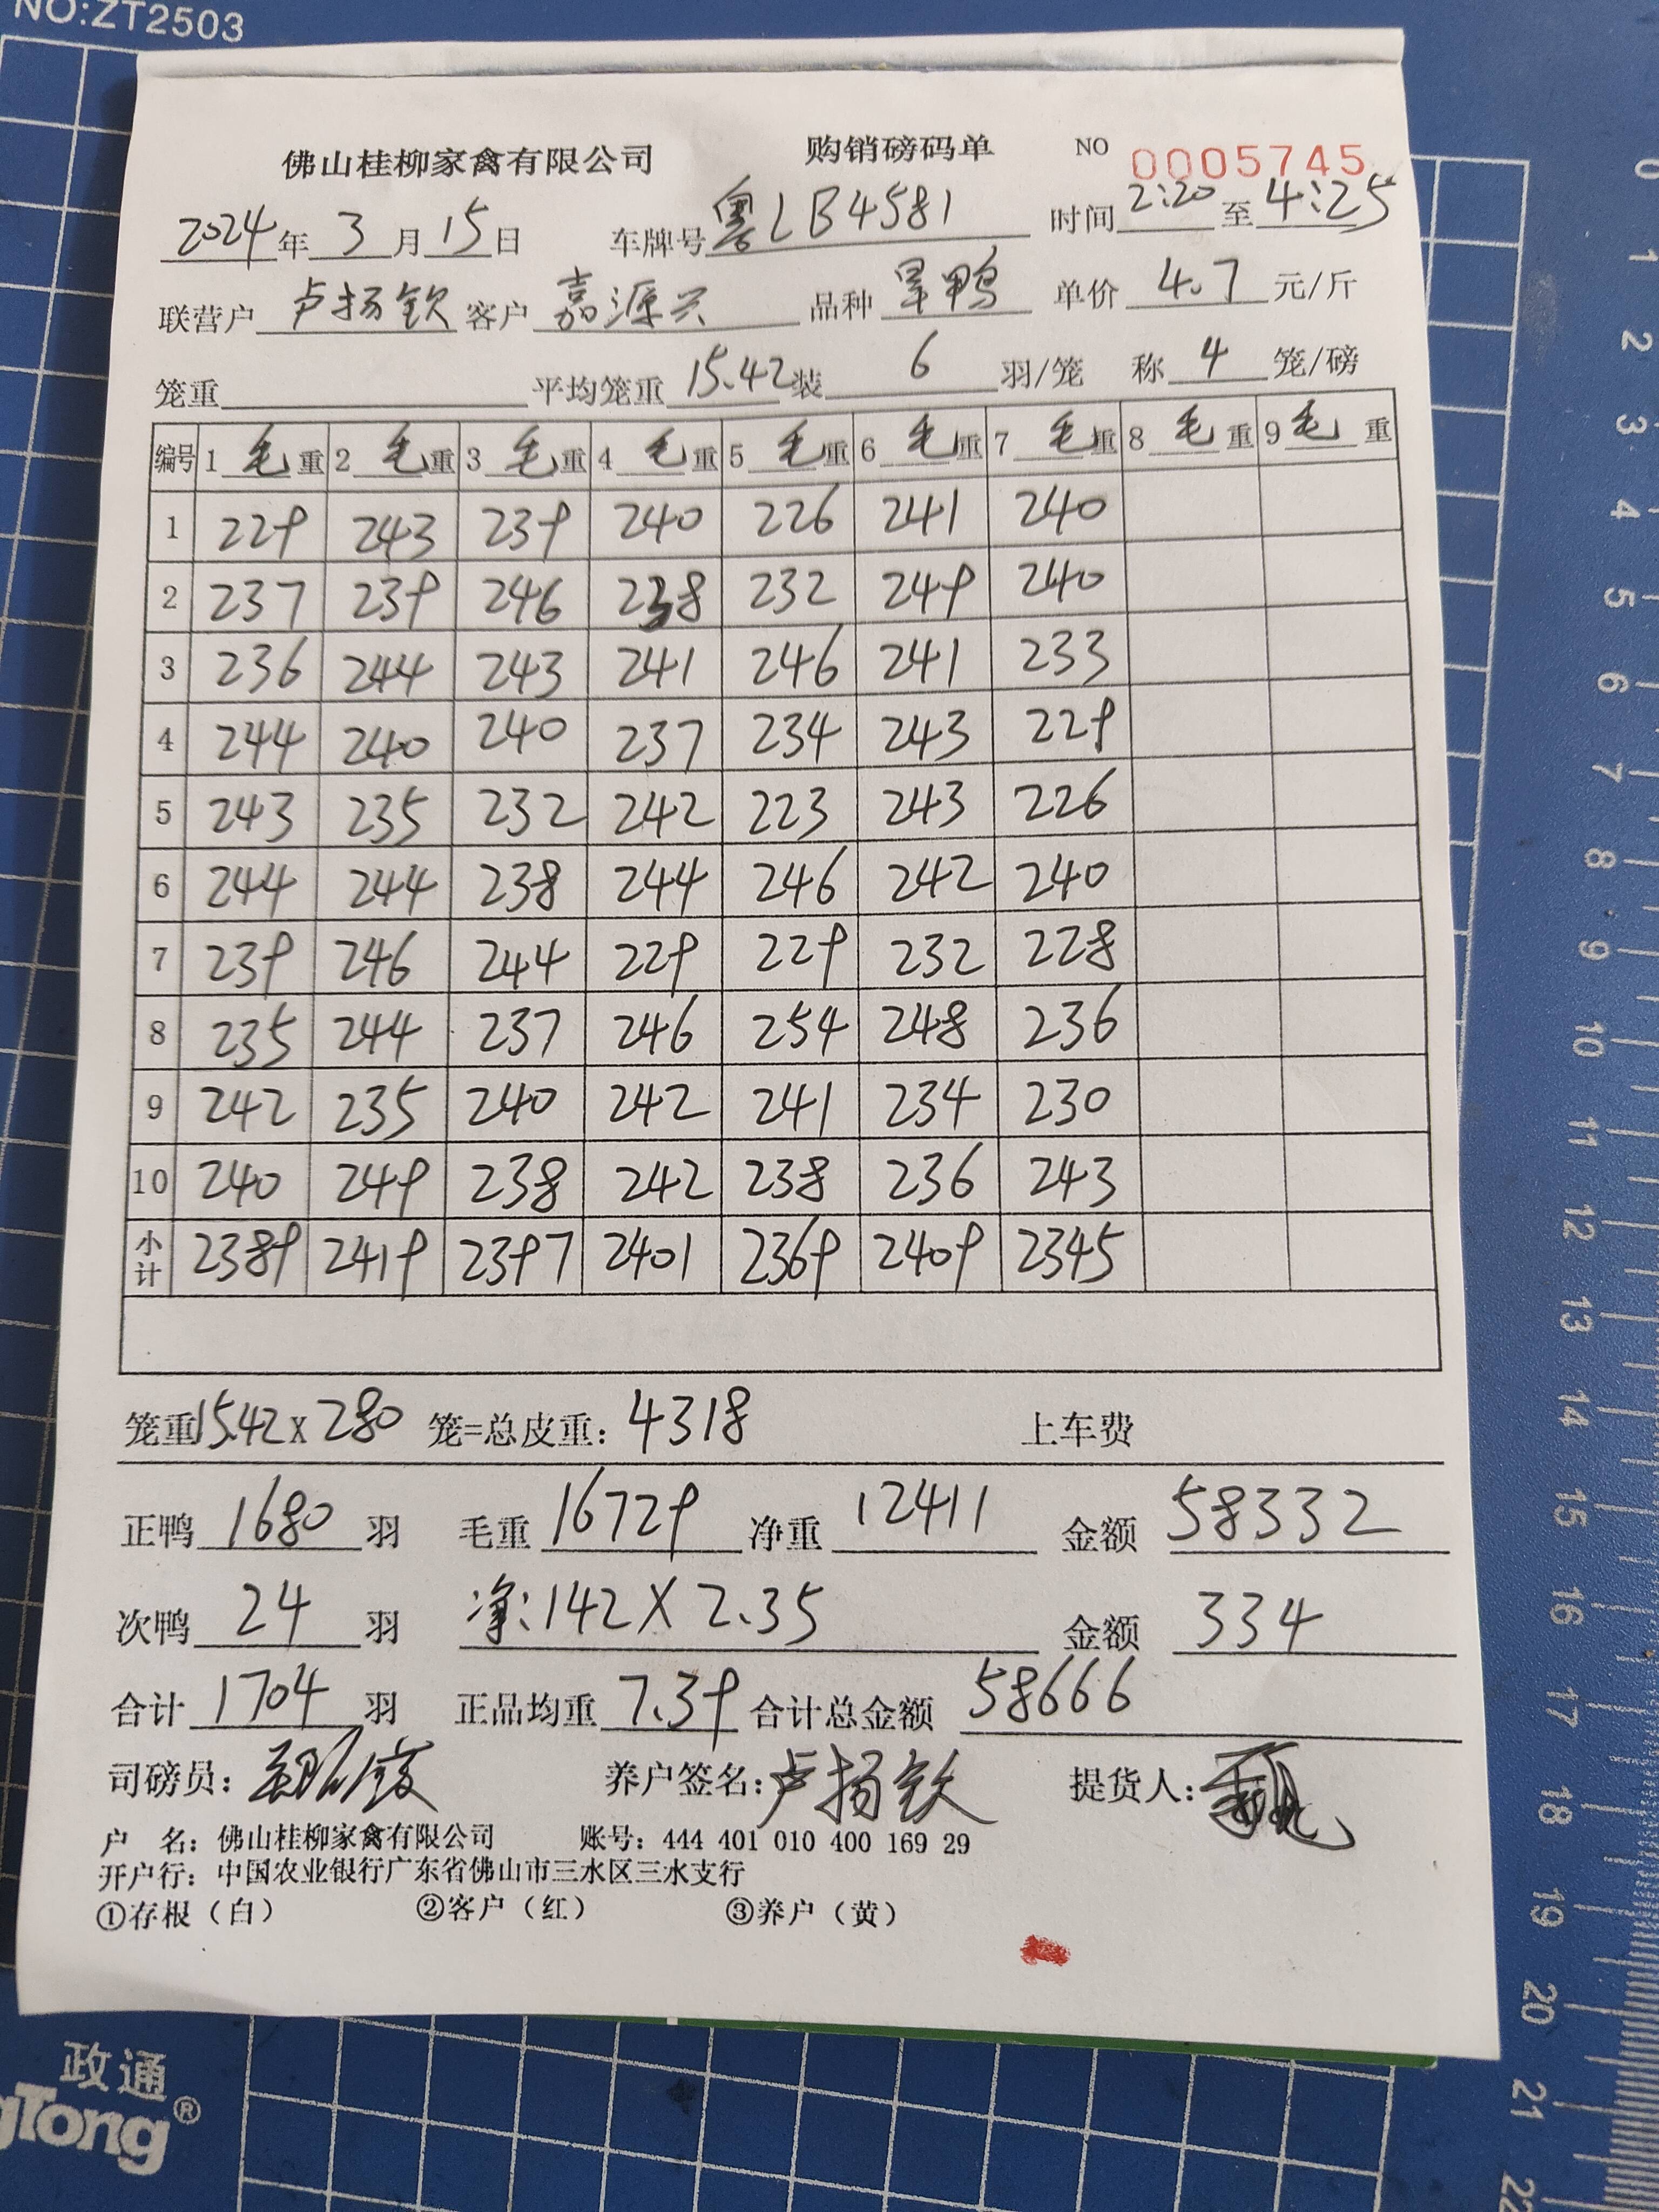 NO:ZT2503
佛山桂柳家禽有限公司 购销磅码单 NO 0005745
2024年3月15日 车牌号粤LB4581 时间2:20至4:25
联营户卢扬钦客户嘉源兴 品种旱鸭 单价4.7元/斤
笼重 平均笼重15.42装6羽/笼 称4笼/磅
编号 1毛重 2毛重 3毛重 4毛重 5毛重 6毛重 7毛重 8毛重 9毛重
1 229 243 239 240 226 241 240
2 237 239 246 238 232 249 240
3 236 244 243 241 246 241 233
4 244 240 240 237 234 243 229
5 243 235 232 242 223 243 226
6 244 244 238 244 246 242 240
7 239 246 244 229 229 232 228
8 235 244 237 246 254 248 236
9 242 235 240 242 241 234 230
10 240 249 238 242 238 236 243
小计 2389 2419 2397 2401 2369 2409 2345
笼重15.42x280笼=总皮重:4318 上车费
正鸭1680羽 毛重16729净重12411 金额58332
次鸭24羽 净:142X2.35 金额334
合计1704羽 正品均重7.39合计总金额58666
司磅员: 养户签名:卢扬钦 提货人:
户 名:佛山桂柳家禽有限公司 账号:444 401 010 400 169 29
开户行:中国农业银行广东省佛山市三水区三水支行
①存根(白) ②客户(红) ③养户(黄)
政通
gTong®
0
1
2
3
4
5
6
7
8
9
10
11
12
13
14
15
16
17
18
19
20
21
22